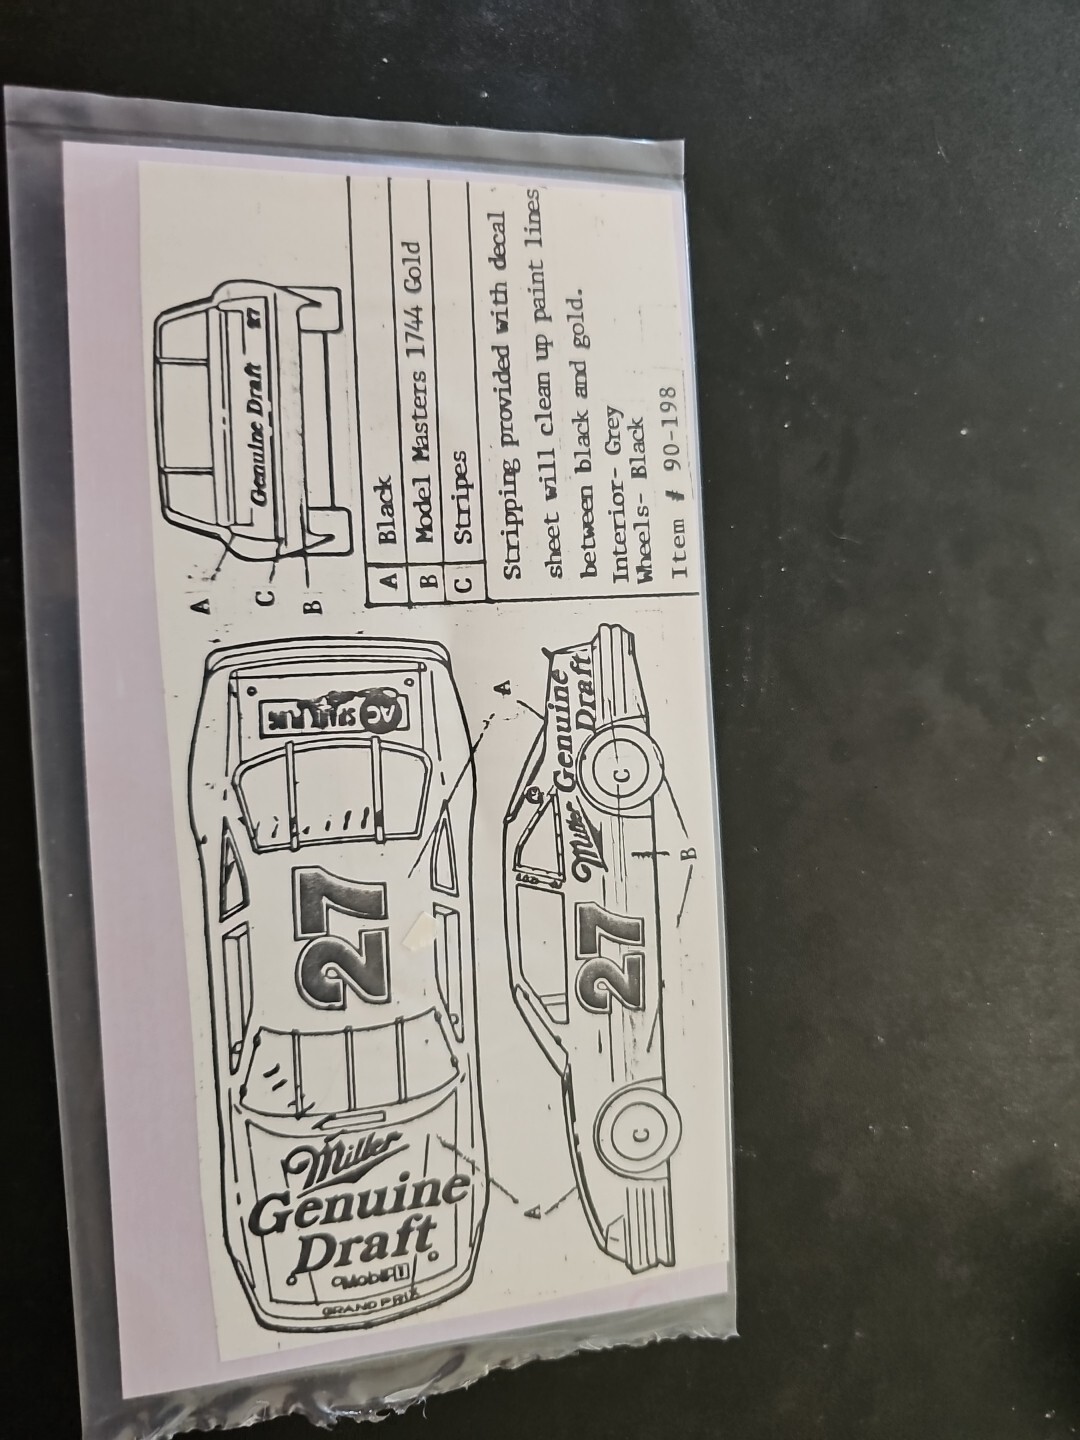 Genuine Draft 27
A
C
B
A Black
B Model Masters 1744 Gold
C Stripes
Stripping provided with decal
sheet will clean up paint lines
between black and gold.
Interior- Grey
Wheels- Black
Item # 90-198
Miller
Genuine
Draft
Mobil 1
GRAND PRIX
27
AC
A
A
Miller Genuine
Draft
27
C
C
B